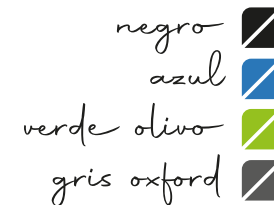 negro
azul
verde olivo
gris oxford